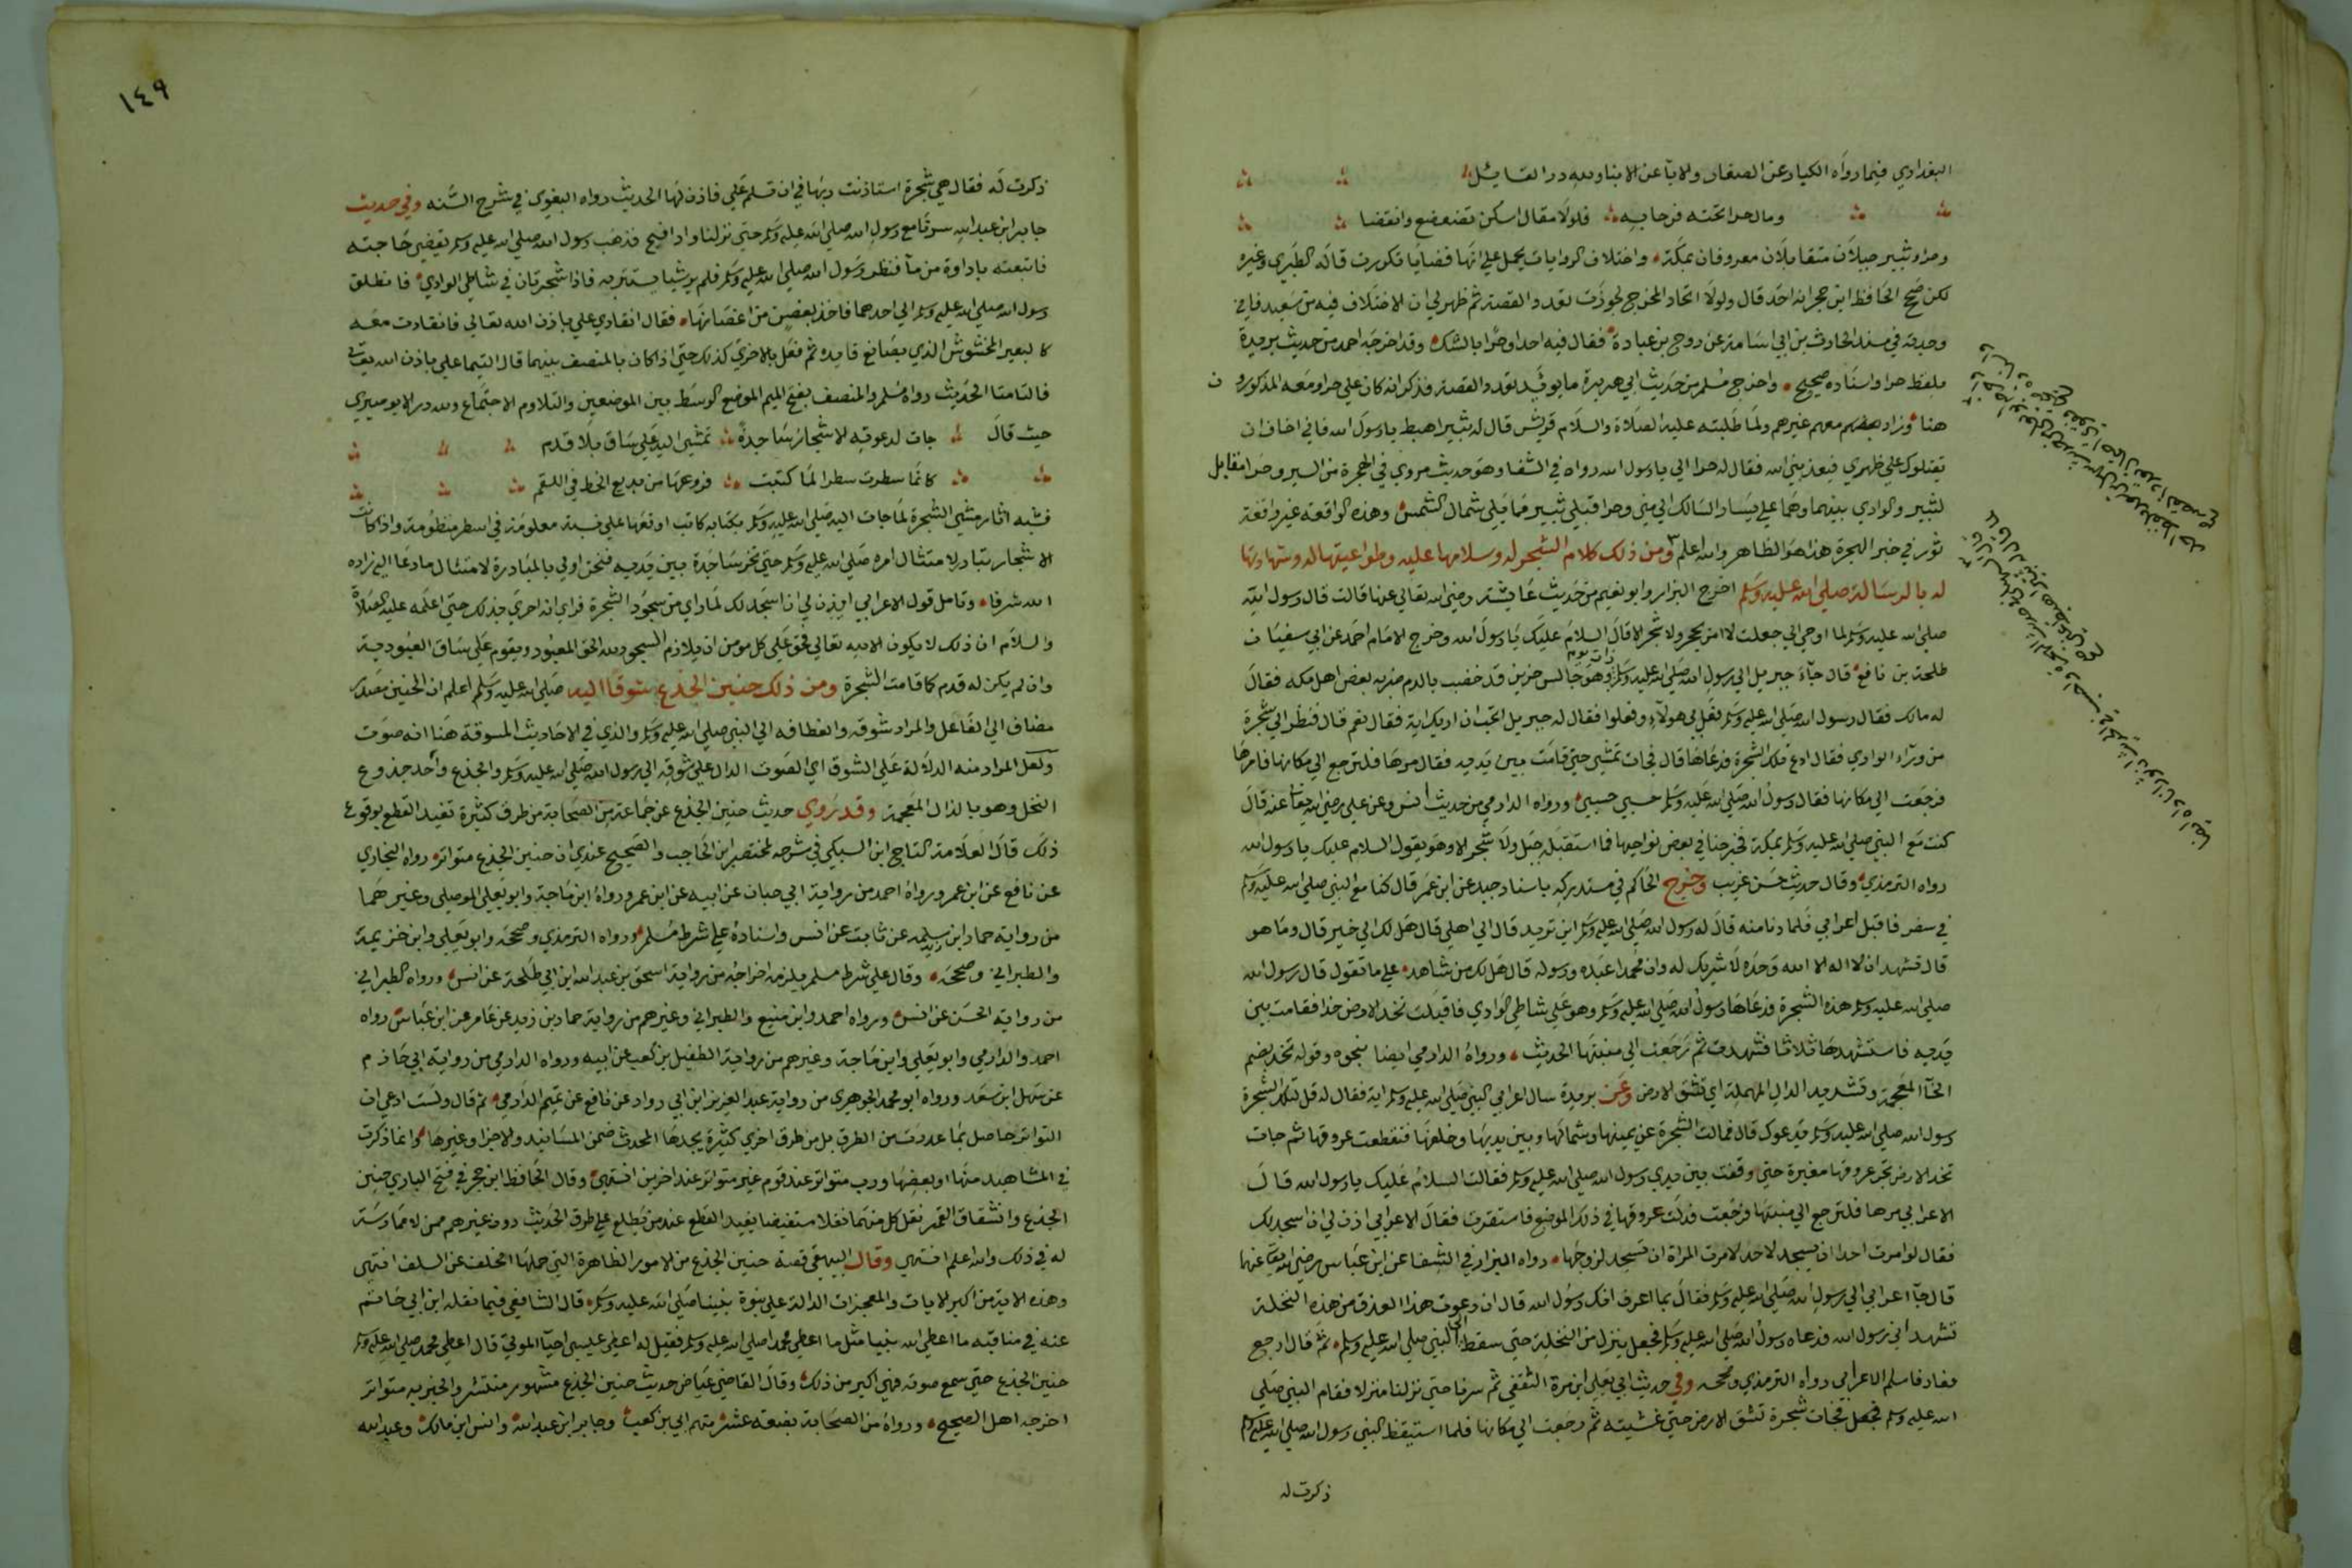 البغدادي فيما رواه الكبار عن الصغار والابآ عن الابنا ولله در القائل
ومال حرا تحته فرحا به فلولا مقال اسكن تضعضع وانقضا
وحرا وثبير جبلان متقابلان معروفان بمكة واختلاف الروايات يحمل علي انها قضايا تكررت قاله الطبري وغيره
لكن صحح الحافظ ابن حجر انه احد قال ولولا اتحاد المخرج لجوزت تعدد القصة ثم ظهر لي ان الاختلاف فيه من سعيد فاني
وجدته في مسند الحارث بن ابي اسامة عن روح بن عبادة فقال فيه احدا او حرا بالشك وقد اخرجه احمد من حديث بريدة
بلفظ حرا واسناده صحيح واخرج مسلم من حديث ابي هريرة ما يويد تعدد القصة فذكر انه كان علي حرا ومعه المذكورون
هنا وزاد بعضهم معهم غيرهم ولما طلبته عليه الصلاة والسلام قريش قال له ثبير اهبط يا رسول الله فاني اخاف ان
يقتلوك علي ظهري فيعذبني الله فقال له حرا الي يا رسول الله رواه في الشفا وهو حديث مروي في الهجرة من السير وحرا مقابل
لثبير والوادي بينهما وهما علي يسار السالك الي مني وحرا قبلي ثبير مما يلي شمال الشمس وهذه الواقعة غير واقعة
ثور في خبر الهجرة هذا هو الظاهر والله اعلم ومن ذلك كلام الشجر له وسلامها عليه وطواعيتها له وشهادتها
له بالرسالة صلي الله عليه وسلم اخرج البزار وابو نعيم من حديث عائشة رضي الله تعالي عنها قالت قال رسول الله
صلي الله عليه وسلم لما اوحي الي جعلت لا امر بحجر ولا شجر الا قال السلام عليك يا رسول الله وخرج الامام احمد عن ابي سفيان
طلحة بن نافع قال جآء جبريل الي رسول الله صلي الله عليه وسلم ذات يوم وهو جالس حزين قد خضب بالدم ضربه بعض اهل مكه فقال
له مالك فقال رسول الله صلي الله عليه وسلم فعل بي هولآء وفعلوا فقال له جبريل اتحب ان اريك اية فقال نعم قال فنظر الي شجرة
من ورآء الوادي فقال ادع تلك الشجرة فدعاها قال فجات تمشي حتي قامت بين يديه فقال مرها فلترجع الي مكانها فامرها
فرجعت الي مكانها فقال رسول الله صلي الله عليه وسلم حسبي حسبي ورواه الدارمي من حديث انس وعن علي رضي الله تعالي عنه قال
كنت مع النبي صلي الله عليه وسلم بمكة فخرجنا في بعض نواحيها فما استقبله جبل ولا شجر الا وهو يقول السلام عليك يا رسول الله
رواه الترمذي وقال حديث حسن غريب وخرج الحاكم في مستدركه باسناد جيد عن ابن عمر قال كنا مع النبي صلي الله عليه وسلم
في سفر فاقبل اعرابي فلما دنا منه قال له رسول الله صلي الله عليه وسلم اين تريد قال الي اهلي قال هل لك الي خير قال وما هو
قال تشهد ان لا اله الا الله وحده لا شريك له وان محمدا عبده ورسوله قال هل لك من شاهد علي ما تقول قال رسول الله
صلي الله عليه وسلم هذه الشجرة فدعاها رسول الله صلي الله عليه وسلم وهو علي شاطي الوادي فاقبلت تخد الارض خدا فقامت بين
يديه فاستشهدها ثلاثا فشهدت ثم رجعت الي منبتها الحديث ورواه الدارمي ايضا بنحوه وقوله تخد بضم
الخآ المعجمة وتشديد الدال المهملة اي تشق الارض وعن بريدة سال اعرابي النبي صلي الله عليه وسلم اية فقال له قل لتلك الشجرة
رسول الله صلي الله عليه وسلم يدعوك قال فمالت الشجرة عن يمينها وشمالها وبين يديها وخلفها فتقطعت عروقها ثم جات
تخد الارض تجر عروقها مغيرة حتي وقفت بين يدي رسول الله صلي الله عليه وسلم فقالت السلام عليك يا رسول الله قال
الاعرابي مرها فلترجع الي منبتها فرجعت فدلت عروقها في ذلك الموضع فاستقرت فقال الاعرابي اذن لي ان اسجد لك
فقال لو امرت احدا ان يسجد لاحد لامرت المراة ان تسجد لزوجها رواه البزار في الشفا عن ابن عباس رضي الله تعالي عنهما
قال جآ اعرابي الي رسول الله صلي الله عليه وسلم فقال بما اعرف انك رسول الله قال ان دعوت هذا العذق من هذه النخلة
تشهد اني رسول الله فدعاه رسول الله صلي الله عليه وسلم فجعل ينزل من النخلة حتي سقط الي النبي صلي الله عليه وسلم ثم قال ارجع
فعاد فاسلم الاعرابي رواه الترمذي وصححه وفي حديث ابي يعلي ابن مرة الثقفي ثم سرنا حتي نزلنا منزلا فقام النبي صلي
الله عليه وسلم فجات شجرة تشق الارض حتي غشيته ثم رجعت الي مكانها فلما استيقظ النبي رسول الله صلي الله عليه وسلم
ذكرت له
١٤٩
ذكرت له فقال هي شجرة استاذنت ربها في ان تسلم علي فاذن لها الحديث رواه البغوي في شرح السنه وفي حديث
جابر ابن عبد الله سرنا مع رسول الله صلي الله عليه وسلم حتي نزلنا واديا افيح فذهب رسول الله صلي الله عليه وسلم يقضي حاجته
فاتبعته باداوة من مآ فنظر رسول الله صلي الله عليه وسلم فلم ير شيا يستتر به فاذا شجرتان في شاطي الوادي فانطلق
رسول الله صلي الله عليه وسلم الي احدهما فاخذ بغصن من اغصانها فقال انقادي علي باذن الله تعالي فانقادت معه
كالبعير المخشوش الذي يصانع قايده ثم فعل بالاخري كذلك حتي اذا كان بالمنصف بينهما قال التيما علي باذن الله تعالي
فالتامتا الحديث رواه مسلم والمنصف بفتح الميم الموضع الوسط بين الموضعين والتلاوم الاجتماع ولله در الابوصيري
حيث قال جات لدعوته الاشجار ساجدة تمشي اليه علي ساق بلا قدم
كانما سطرت سطرا لما كتبت فروعها من بديع الخط في اللقم
فشبه اثار مشي الشجرة لما جات اليه صلي الله عليه وسلم بكتابة كاتب اوقعها علي نسبة معلومة في اسطر منظومة واذا كانت
الاشجار تبادر لامتثال امره صلي الله عليه وسلم حتي تخر ساجدة بين يديه فنحن اولي بالمبادرة لامتثال ما دعا اليه زاده
الله شرفا وتامل قول الاعرابي ايذن لي ان اسجد لك لما راي من سجود الشجرة فراي انه احري بذلك حتي اعلمه عليه الصلاة
والسلام ان ذلك لا يكون الا لله تعالي فحق علي كل مومن ان يلازم السجود لله الحق المعبود ويقوم علي ساق العبودية
وان لم يكن له قدم كما قامت الشجرة ومن ذلك حنين الجذع شوقا اليه صلي الله عليه وسلم اعلم ان الحنين مصدر
مضاف الي الفاعل والمراد شوقه وانعطافه الي النبي صلي الله عليه وسلم والذي في الاحاديث المسوقة هنا انه صوت
ولعل المراد منه الدلالة علي الشوق اي الصوت الدال علي شوقه الي رسول الله صلي الله عليه وسلم والجذع واحد جذوع
النخل وهو بالذال المعجمة وقد روي حديث حنين الجذع عن جماعة من الصحابة من طرق كثيرة تفيد القطع بوقوع
ذلك قال العلامة التاج ابن السبكي في شرحه لمختصر ابن الحاجب والصحيح عندي ان حنين الجذع متواتر رواه البخاري
عن نافع عن ابن عمر ورواه احمد من رواية ابي حبان عن ابيه عن ابن عمر ورواه ابن ماجة وابو يعلي الموصلي وغيرهما
من رواية حماد ابن سلمة عن ثابت عن انس واسناده علي شرط مسلم ورواه الترمذي وصححه وابو يعلي وابن خزيمة
والطبراني وصححه وقال علي شرط مسلم يلزمه اخراجه من رواية اسحق بن عبد الله ابن ابي طلحة عن انس ورواه الطبراني
من رواية الحسن عن انس ورواه احمد وابن منيع والطبراني وغيرهم من رواية حماد بن زيد عن عامر عن ابن عباس رواه
احمد والدارمي وابو يعلي وابن ماجة وغيرهم من رواية الطفيل بن كعب عن ابيه ورواه الدارمي من رواية ابي حازم
عن سهل ابن سعد ورواه ابو محمد الجوهري من رواية عبد العزيز ابن ابي رواد عن نافع عن تميم الدارمي ثم قال ولست ادعي ان
التواتر حاصل بما عددت من الطرق بل من طرق اخري كثيرة يجدها المحدث ضمن المسانيد والاجزا وغيرها وانما ذكرت
في المشاهيد منها او بعضها ورب متواتر عند قوم غير متواتر عند اخرين انتهي وقال الحافظ ابن حجر في فتح الباري حنين
الجذع وانشقاق القمر نقل كل منهما نقلا مستفيضا يفيد القطع عند من يطلع علي طرق الحديث دون غيرهم ممن لا ممارسة
له في ذلك والله اعلم انتهي وقال البيهقي قصة حنين الجذع من الامور الظاهرة التي حملها الخلف عن السلف انتهي
وهذه الاية من اكبر الايات والمعجزات الدالة علي نبوة نبينا صلي الله عليه وسلم قال الشافعي فيما نقله ابن ابي حاتم
عنه في مناقبه ما اعطي الله نبيا مثل ما اعطي محمدا صلي الله عليه وسلم فقيل له اعطي عيسي احيآ الموتي قال اعطي محمد صلي الله عليه وسلم
حنين الجذع حتي سمع صوته فهي اكبر من ذلك وقال القاضي عياض حديث حنين الجذع مشهور منتشر والخبر به متواتر
اخرجه اهل الصحيح ورواه من الصحابة بضعة عشر منهم ابي بن كعب وجابر ابن عبد الله وانس ابن مالك وعبد الله